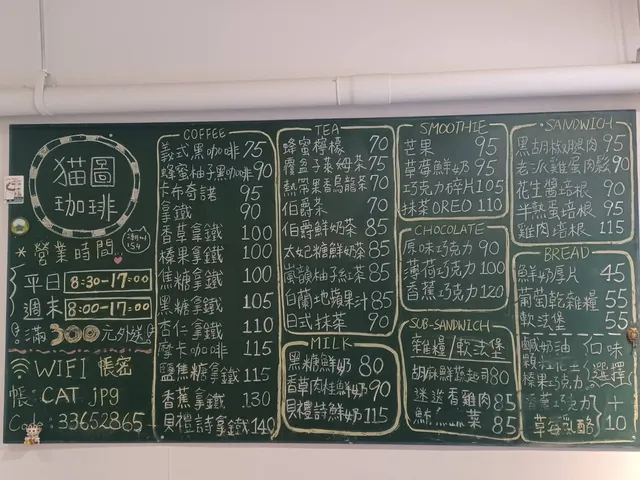 猫圖
珈琲
*營業時間
平日 8:30-17:00
週末 8:00-17:00
滿300元外送
WIFI 帳密
帳 CAT jpg
Code: 33652865
COFFEE
義式黑咖啡 75
蜂蜜柚子黑咖啡 90
卡布奇諾 95
拿鐵 90
香草拿鐵 100
榛果拿鐵 100
焦糖拿鐵 100
黑糖拿鐵 105
杏仁拿鐵 110
摩卡咖啡 115
鹽焦糖拿鐵 115
香蕉拿鐵 130
貝禮詩拿鐵 140
TEA
蜂蜜檸檬 70
覆盆子萊姆茶 75
熱帶果香烏龍茶 70
伯爵茶 70
伯爵鮮奶茶 85
太妃糖鮮奶茶 85
柚子紅茶 85
白蘭地蘋果汁 85
日式抹茶 90
MILK
黑糖鮮奶 80
香草肉桂鮮奶 90
貝禮詩鮮奶 115
SMOOTHIE
芒果 95
草莓鮮奶 95
巧克力碎片 105
抹茶OREO 110
CHOCOLATE
原味巧克力 90
薄荷巧克力 100
香蕉巧克力 120
SUB-SANDWICH
雜糧/軟法堡
胡麻鮮蔬起司 80
迷迭香雞肉 85
鮪 菜 85
SANDWICH
黑胡椒腿肉 95
老派雞蛋肉鬆 90
花生醬培根 90
半熟蛋培根 95
雞肉培根 115
BREAD
鮮奶厚片 45
葡萄乾雜糧 55
軟法堡 55
鹹奶油
顆粒花生
榛果巧克力
口味選擇
巧克力
草莓乳酪
+10